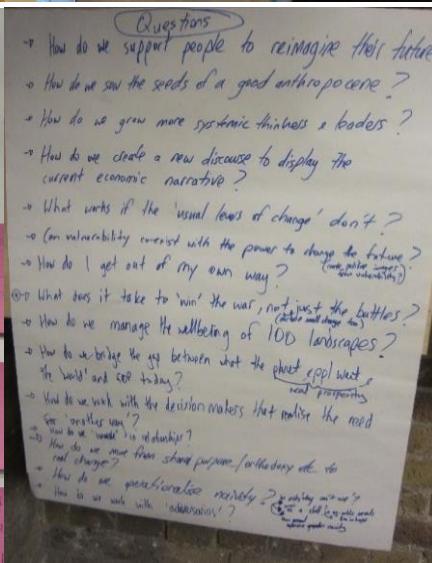 Questions
How do we support people to reimagine their future
How do we sow the seeds of a good anthropocene?
How do we grow more systemic thinkers & leaders?
How do we create a new discourse to display the
current economic narrative?
What works if the 'usual levers of change' don't?
Can vulnerability coexist with the power to change the future?
How do I get out of my own way?
What does it take to 'win' the war, not just the battles?
How do we manage the wellbeing of 100 landscapes?
How do we bridge the gap between what the planet, ppl want &
the world and today?
real prosperity
How do we work with the decision makers that realise the need
for 'another way'?
How do we in relationships?
How do we move from shared purpose/orthodoxy etc. to
real change?
How do we operationalise naivety?
How do we work with 'adversaries'?